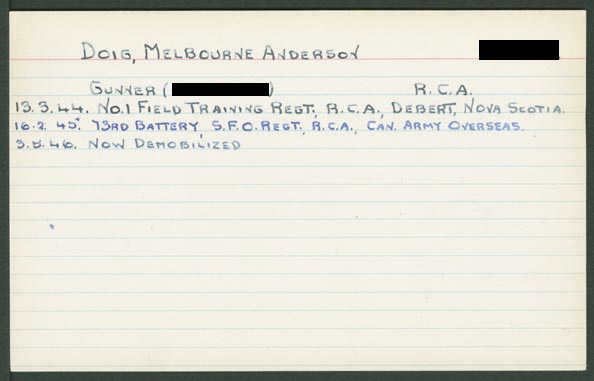 DOIG, MELBOURNE ANDERSON
GUNNER ( ) R.C.A.
13.3.44. NO.1 FIELD TRAINING REGT., R.C.A., DEBERT, NOVA SCOTIA.
16.2.45. 73RD BATTERY, S.F.O. REGT., R.C.A., CAN. ARMY OVERSEAS.
3.5.46. NOW DEMOBILIZED